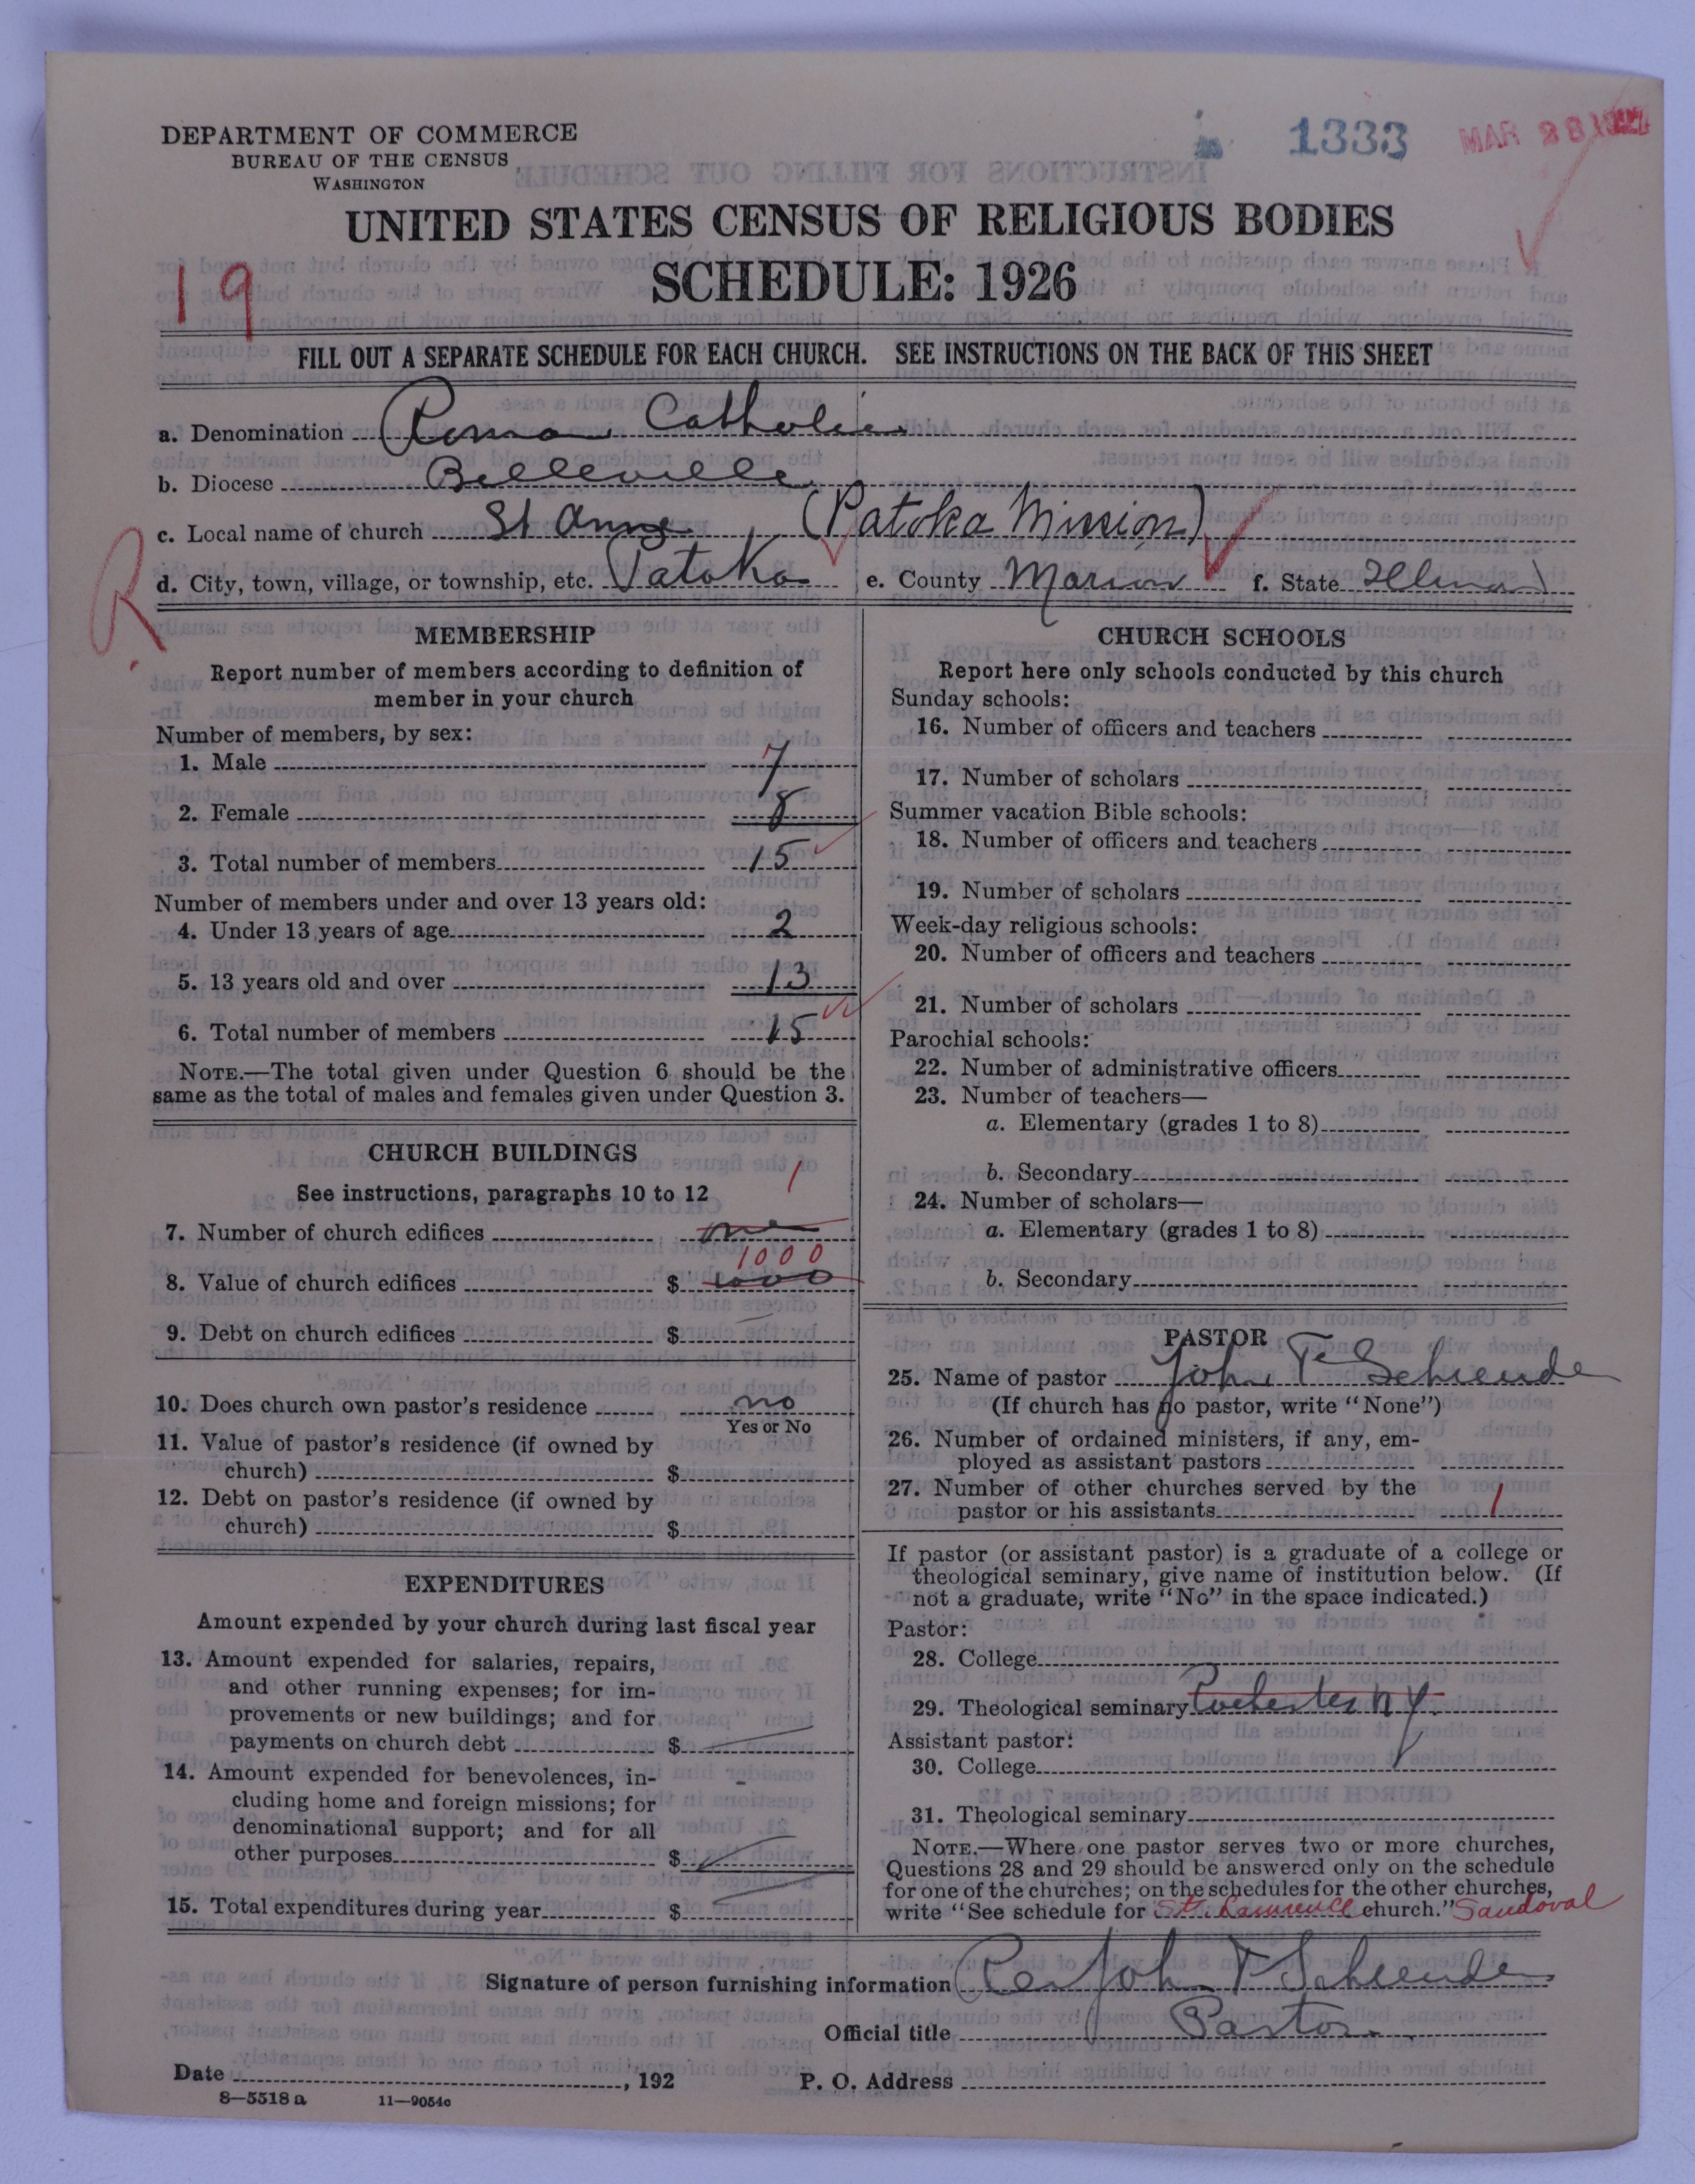 1333 MAR 28 1927
DEPARTMENT OF COMMERCE
BUREAU OF THE CENSUS
WASHINGTON
UNITED STATES CENSUS OF RELIGIOUS BODIES
19
SCHEDULE: 1926
FILL OUT A SEPARATE SCHEDULE FOR EACH CHURCH. SEE INSTRUCTIONS ON THE BACK OF THIS SHEET
a. Denomination Roman Catholic
b. Diocese Belleville
c. Local name of church St Anne (Patoka Mission)
R
d. City, town, village, or township, etc. Patoka e. County Marion f. State Illinois
MEMBERSHIP
Report number of members according to definition of
member in your church
Number of members, by sex:
1. Male 7
2. Female 8
3. Total number of members 15
Number of members under and over 13 years old:
4. Under 13 years of age 2
5. 13 years old and over 13
6. Total number of members 15
NOTE.—The total given under Question 6 should be the
same as the total of males and females given under Question 3.
CHURCH BUILDINGS
See instructions, paragraphs 10 to 12
1
7. Number of church edifices one
1000
8. Value of church edifices $ 1000
9. Debt on church edifices $
10. Does church own pastor's residence no
Yes or No
11. Value of pastor's residence (if owned by
church) $
12. Debt on pastor's residence (if owned by
church) $
EXPENDITURES
Amount expended by your church during last fiscal year
13. Amount expended for salaries, repairs,
and other running expenses; for im-
provements or new buildings; and for
payments on church debt $
14. Amount expended for benevolences, in-
cluding home and foreign missions; for
denominational support; and for all
other purposes $
15. Total expenditures during year $
CHURCH SCHOOLS
Report here only schools conducted by this church
Sunday schools:
16. Number of officers and teachers
17. Number of scholars
Summer vacation Bible schools:
18. Number of officers and teachers
19. Number of scholars
Week-day religious schools:
20. Number of officers and teachers
21. Number of scholars
Parochial schools:
22. Number of administrative officers
23. Number of teachers—
a. Elementary (grades 1 to 8)
b. Secondary
24. Number of scholars—
a. Elementary (grades 1 to 8)
b. Secondary
PASTOR
25. Name of pastor John T
(If church has no pastor, write "None")
26. Number of ordained ministers, if any, em-
ployed as assistant pastors
27. Number of other churches served by the
pastor or his assistants 1
If pastor (or assistant pastor) is a graduate of a college or
theological seminary, give name of institution below. (If
not a graduate, write "No" in the space indicated.)
Pastor:
28. College
29. Theological seminary Rochester N Y.
Assistant pastor:
30. College
31. Theological seminary
NOTE.—Where one pastor serves two or more churches,
Questions 28 and 29 should be answered only on the schedule
for one of the churches; on the schedules for the other churches,
write "See schedule for St. Lawrence church." Sandoval
Signature of person furnishing information Rev John T
Official title Pastor
Date , 192 P. O. Address
8—5518 a 11—9054c